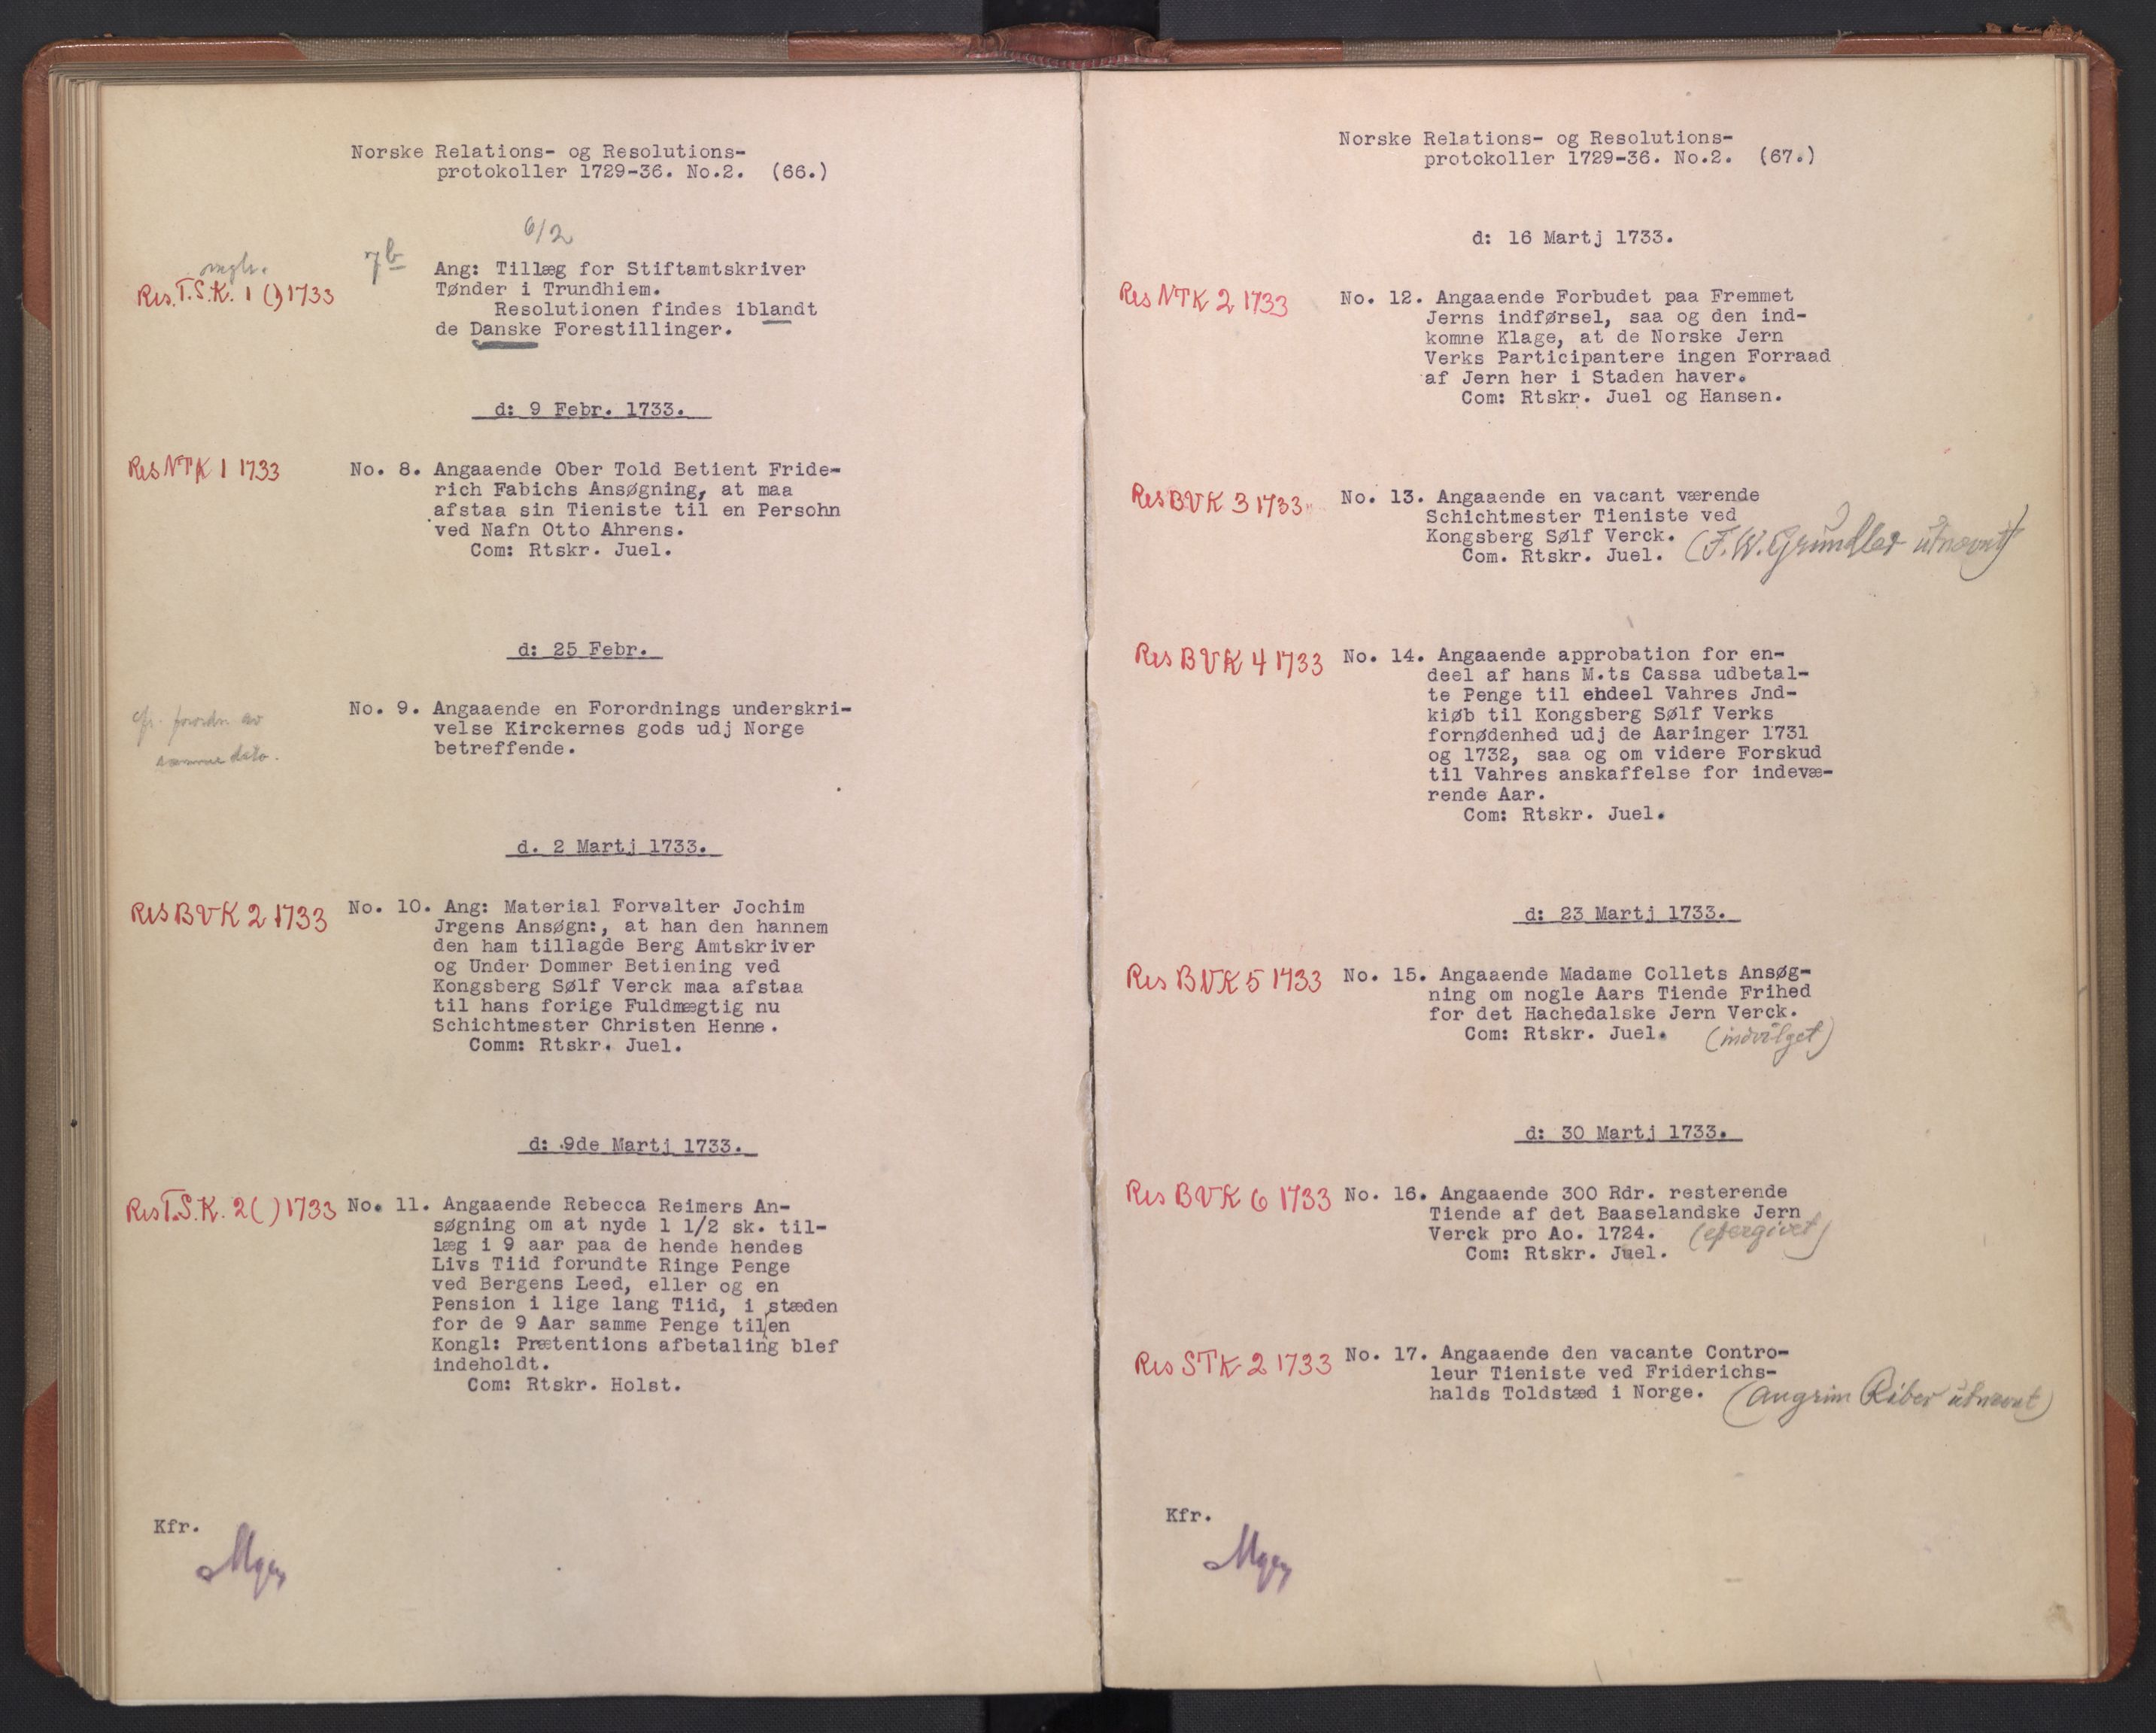 Norske Relations- og Resolutions-
protokoller 1729-36. No.2. (66.)
6/2
7b
Res. T.S.K. 1 () 1733
Ang: Tillæg for Stiftamtskriver
Tønder i Trundhiem.
Resolutionen findes iblandt
de Danske Forestillinger.
d: 9 Febr. 1733.
Res NTK 1 1733
No. 8. Angaaende Ober Told Betient Fride-
rich Fabichs Ansøgning, at maa
afstaa sin Tieniste til en Persohn
ved Nafn Otto Ahrens.
Com: Rtskr. Juel.
d: 25 Febr.
cfr. forordn av
samme dato.
No. 9. Angaaende en Forordnings underskri-
velse Kirckernes gods udj Norge
betreffende.
d. 2 Martj 1733.
Res BVK 2 1733
No. 10. Ang: Material Forvalter Jochim
Jrgens Ansøgn:, at han den hannem
den ham tillagde Berg Amtskriver
og Under Dommer Betiening ved
Kongsberg Sølf Verck maa afstaa
til hans forige Fuldmægtig nu
Schichtmester Christen Henne.
Comm: Rtskr. Juel.
d: 9de Martj 1733.
Res T.S.K. 2 () 1733
No. 11. Angaaende Rebecca Reimers An-
søgning om at nyde 1 1/2 sk. til-
læg i 9 aar paa de hende hendes
Livs Tiid forundte Ringe Penge
ved Bergens Leed, eller og en
Pension i lige lang Tiid, i stæden
for de 9 Aar samme Penge til en
Kongl: Prætentions afbetaling blef
indeholdt.
Com: Rtskr. Holst.
Kfr.
Norske Relations- og Resolutions-
protokoller 1729-36. No.2. (67.)
d: 16 Martj 1733.
Res NTK 2 1733
No. 12. Angaaende Forbudet paa Fremmet
Jerns indførsel, saa og den ind-
komne Klage, at de Norske Jern
Verks Participantere ingen Forraad
af Jern her i Staden haver.
Com: Rtskr. Juel og Hansen.
Res BVK 3 1733
No. 13. Angaaende en vacant værende
Schichtmester Tieniste ved
Kongsberg Sølf Verck.
Com. Rtskr. Juel. (F. W. Gründler utnevnt)
Res BVK 4 1733
No. 14. Angaaende approbation for en-
deel af hans M.ts Cassa udbetal-
te Penge til endeel Vahres Jnd-
kiøb til Kongsberg Sølf Verks
fornødenhed udj de Aaringer 1731
og 1732, saa og om videre Forskud
til Vahres anskaffelse for indevæ-
rende Aar.
Com: Rtskr. Juel.
d: 23 Martj 1733.
Res BVK 5 1733
No. 15. Angaaende Madame Collets Ansøg-
ning om nogle Aars Tiende Frihed
for det Hachedalske Jern Verck.
Com: Rtskr. Juel. (indvilget)
d: 30 Martj 1733.
Res BVK 6 1733
No. 16. Angaaende 300 Rdr. resterende
Tiende af det Baaselandske Jern
Verck pro Ao. 1724. (efergivet)
Com: Rtskr. Juel.
Res STK 2 1733
No. 17. Angaaende den vacante Contro-
leur Tieniste ved Friderichs-
halds Toldstæd i Norge. (Angrim Riber utnevnt)
Kfr.